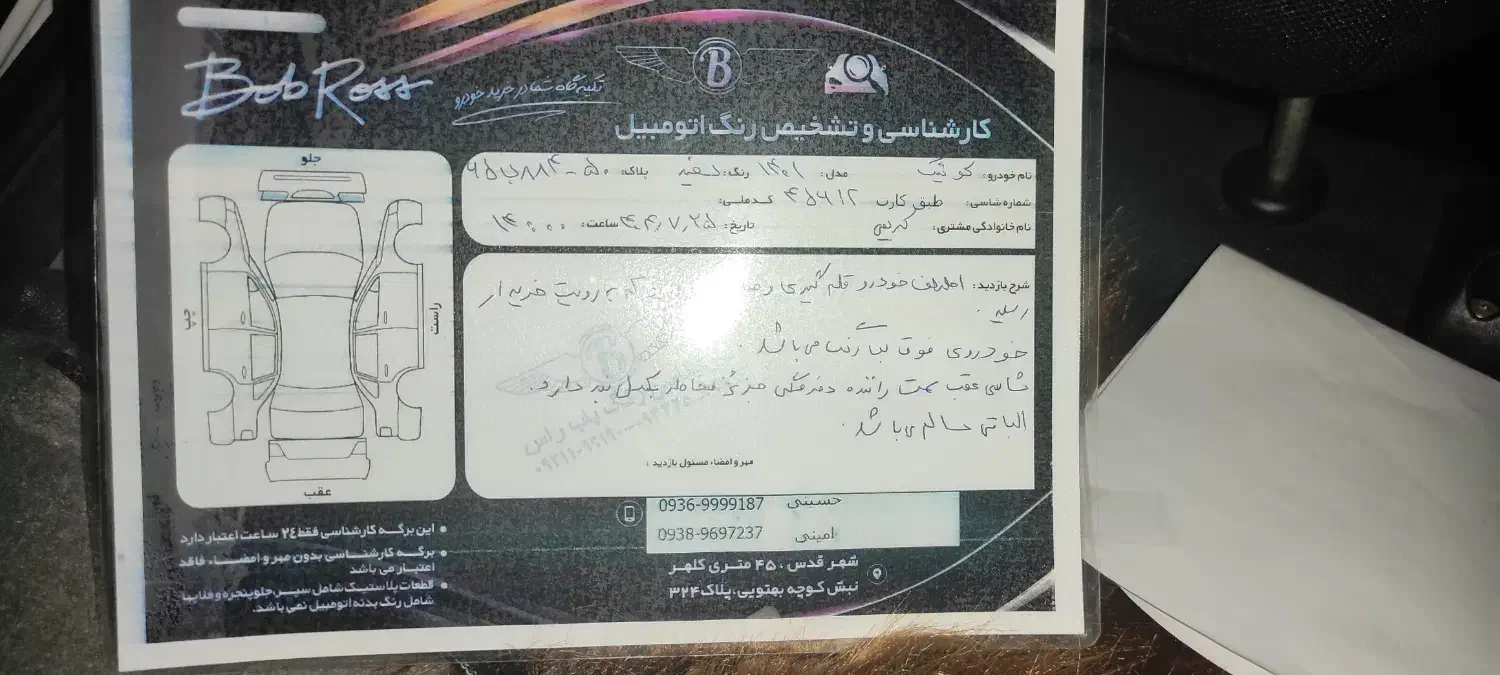 Bob Ross
تکیه گاه شما در خرید خودرو
B
کارشناسی و تشخیص رنگ اتومبیل
نام خودرو: کوئیک مدل: ۱۴۰۱ رنگ: سفید پلاک:
شماره شاسی: طبق کارت ۴۵۶۱۲ کدملی:
نام خانوادگی مشتری: کریمی تاریخ: ۴۰۴/۷/۲۵ ساعت: ۱۴:۰۰
شرح بازدید: اطراف خودرو قلم گیری که به رویت خریدار
رسید.
خودروی فوق بیرنگ می باشد.
شاسی عقب سمت راننده دفرمگی جزئی
دارد.
الباقی سالم می باشد.
مهر و امضاء مسئول بازدید :
جلو
چپ
راست
عقب
حسینی 0936-9999187
امینی 0938-9697237
شهر قدس ، ۴۵ متری کلهر
نبش کوچه بهتویی، پلاک ۳۲۴
• این برگه کارشناسی فقط ۲۴ ساعت اعتبار دارد
• برگه کارشناسی بدون مهر و امضاء، فاقد
اعتبار می باشد
• قطعات پلاستیک شامل سپر، جلوپنجره و فلاپها
شامل رنگ بدنه اتومبیل نمی باشد.